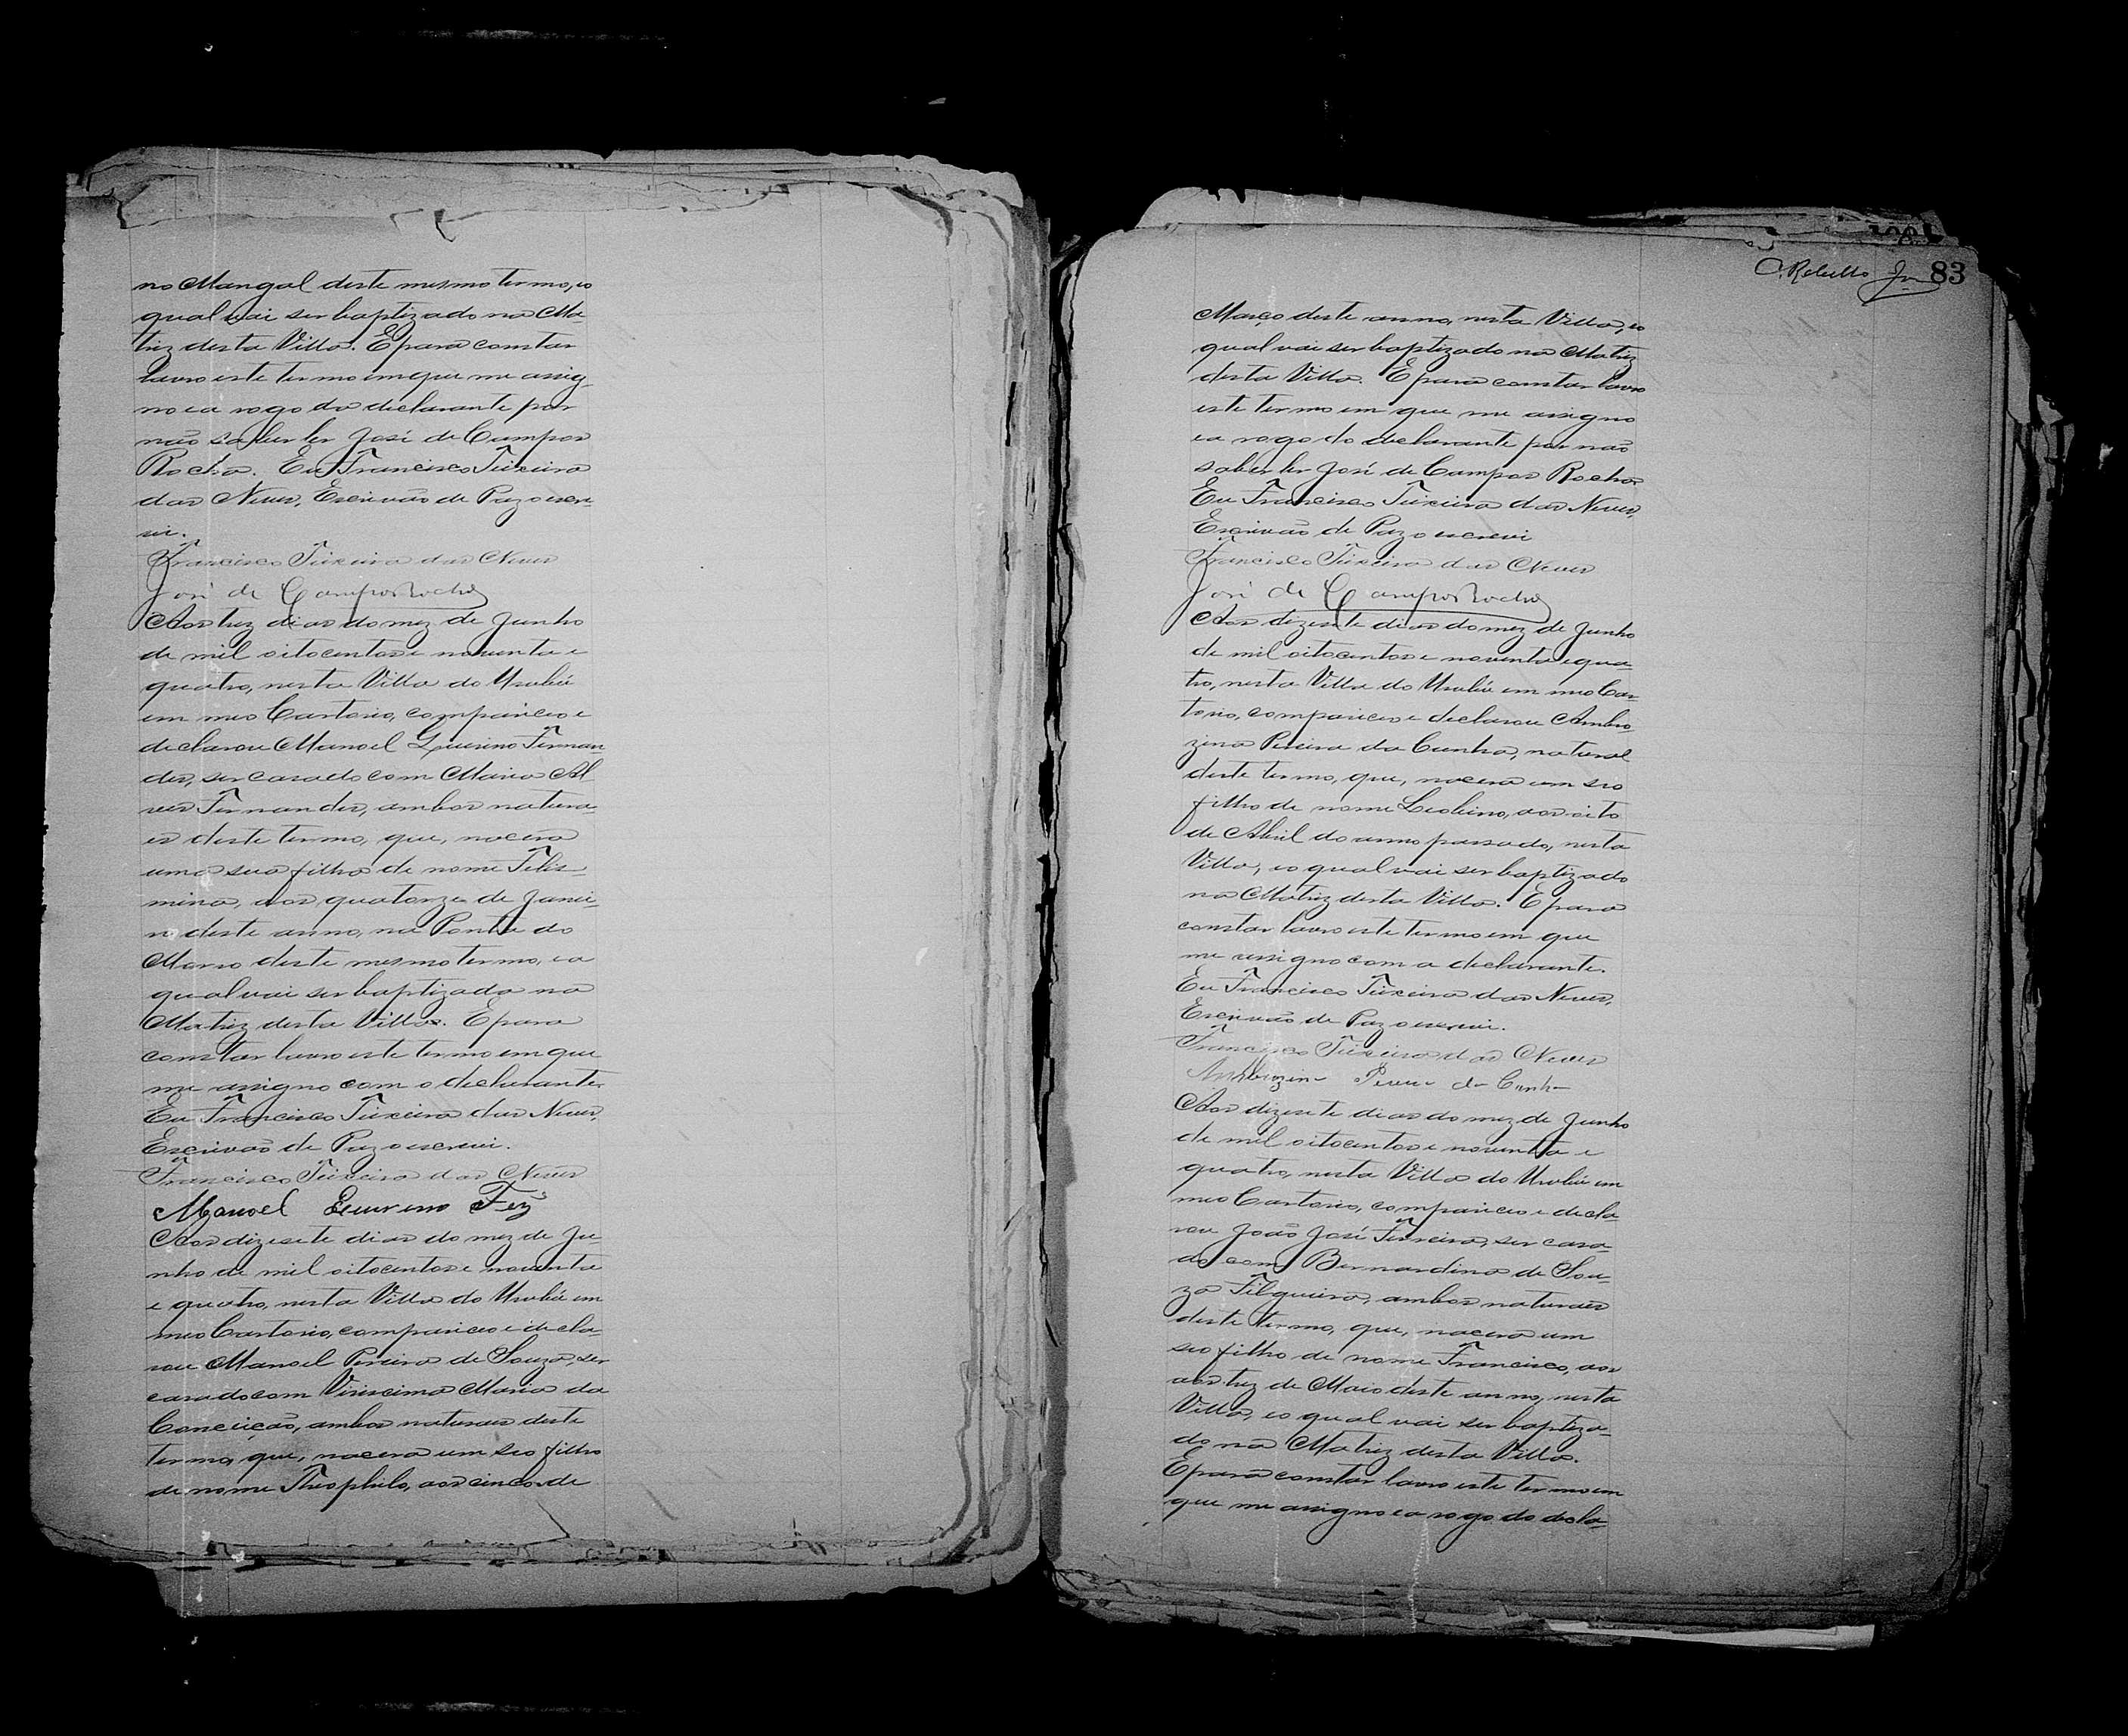 no Mangal deste mesmo termo, o
qual vai ser baptizado na Ma-
triz desta Villa. E para constar
lavro este termo em que me assig-
no e a rogo do declarante por
não saber ler José de Campos
Rocha. Eu Francisco Teixeira
das Neves, Escrivão de Paz o escre-
vi.
Francisco Teixeira das Neves
José de Campos Rocha
Aos trez dias do mez de Junho
de mil oitocentos e noventa e
quatro, nesta Villa do Urubú
em meo Cartorio, compareceo e
declarou Manoel Quirino Fernan-
des, ser casado com Maria Al
ves Fernandes, ambos natura-
es deste termo, que, nacera
uma sua filha de nome Felis
mina, aos quatorze de Janei-
ro deste anno, na Ponta do
Morro deste mesmo termo, e a
qual vai ser baptizada na
Matriz desta Villa. E para
constar lavro este termo em que
me assigno com o declarante.
Eu Francisco Teixeira das Neves,
Escrivão de Paz o escrevi.
Francisco Teixeira das Neves
Manoel Quirino Fez
Aos dizesete dias do mez de Ju
nho de mil oitocentos e noventa
e quatro, nesta Villa do Urubú em
meo Cartorio, compareceo e decla-
rou Manoel Pereira de Souza, ser
casado com Virissima Maria da
Conceição, ambos naturaes deste
termo, que, nacera um seo filho
de nome Theophilo, aos cinco de
C. Rebello Jr 83
Março deste anno, nesta Villa, o
qual vai ser baptizado na Matriz
desta Villa. E para constar lavro
este termo em que me assigno
e a rogo do declarante por não
saber ler José de Campos Rocha.
Eu Francisco Teixeira das Neves,
Escrivão de Paz o escrevi
Francisco Teixeira das Neves
José de Campos Rocha
Aos dizesete dias do mez de Junho
de mil oitocentos e noventa e qua-
tro, nesta Villa do Urubú em meo Car-
torio, compareceo e declarou Ambro
zina Pereira da Cunha, natural
deste termo, que, nacera um seo
filho de nome Leobino, aos oito
de Abril do anno passado, nesta
Villa, e o qual vai ser baptizado
na Matriz desta Villa. E para
constar lavro este termo em que
me assigno com a declarante.
Eu Francisco Teixeira das Neves,
Escrivão de Paz o escrevi.
Francisco Teixeira das Neves
Ambrozina Pereira da Cunha
Aos dizesete dias do mez de Junho
de mil oitocentos e noventa e
quatro, nesta Villa do Urubú em
meo Cartorio, compareceo e decla-
rou João José Ferreira, ser casa-
do com Bernardina de Sou-
za Filgueira, ambos naturaes
deste termo, que, nacera um
seo filho de nome Francisco, aos
aos trez de Maio deste anno, nesta
Villa, e o qual vai ser baptiza-
do na Matriz desta Villa.
E para constar lavro este termo em
que me assigno e a rogo do decla-